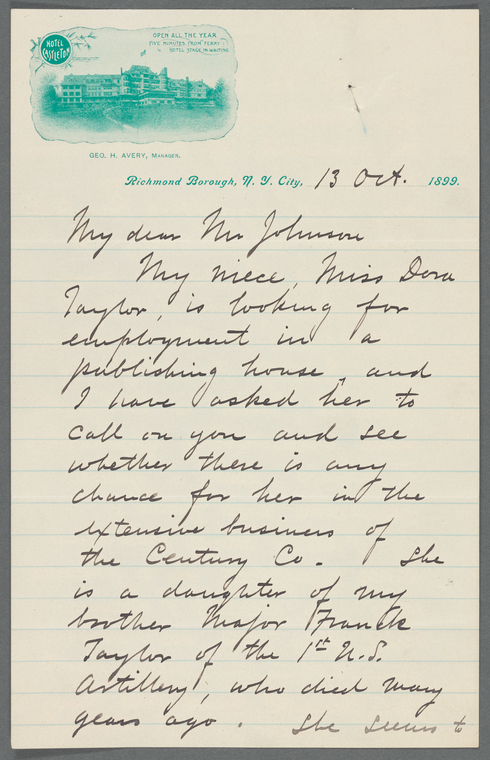 HOTEL
CASTLETON
OPEN ALL THE YEAR
FIVE MINUTES FROM FERRY
HOTEL STAGE IN WAITING
GEO. H. AVERY, MANAGER.
Richmond Borough, N. Y. City, 13 Oct. 1899.
My dear Mr Johnson
My niece, Miss Dora
Taylor, is looking for
employment in a
publishing house, and
I have asked her to
call on you and see
whether there is any
chance for her in the
extensive business of
the Century Co. She
is a daughter of my
brother Major Franck
Taylor of the 1st U.S.
Artillery, who died many
years ago. She seems to